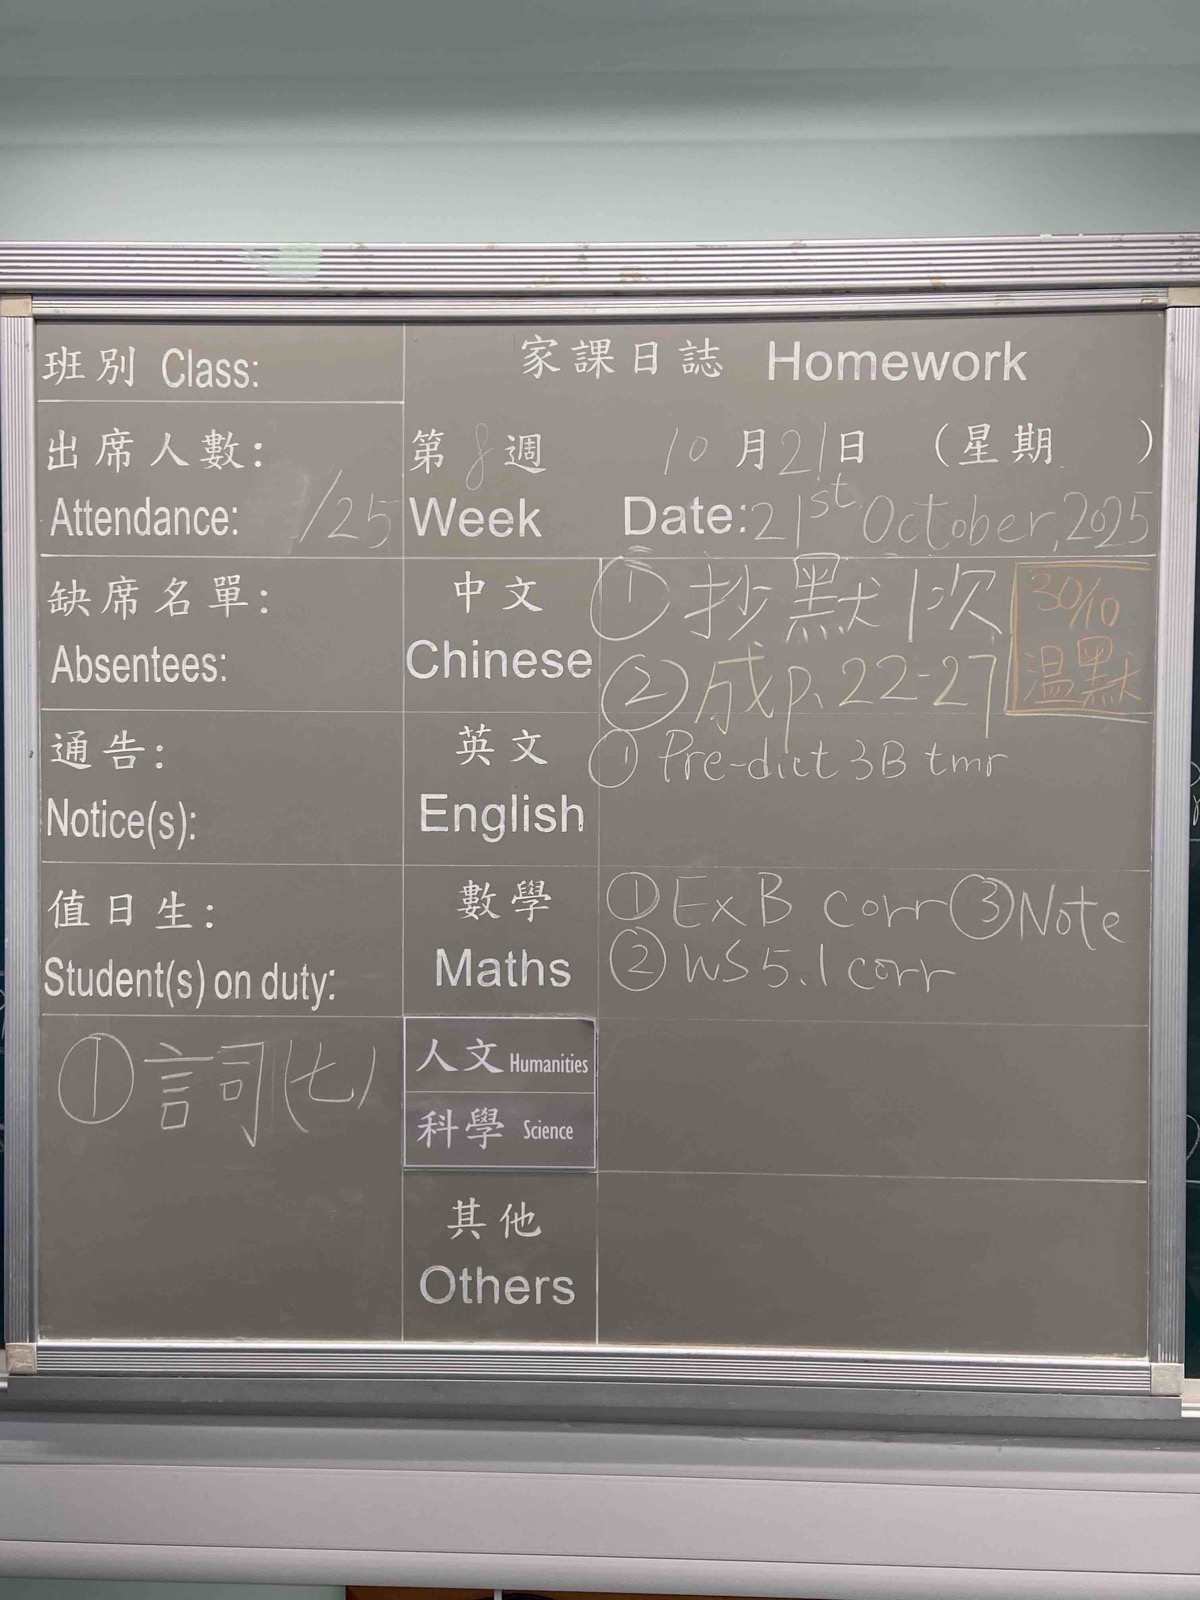 班別 Class:
家課日誌 Homework
出席人數:
Attendance: /25
第8週 10月21日 (星期 )
Week Date: 21st October, 2025
缺席名單:
Absentees:
中文
Chinese
① 抄默1次
② 成p.22-27
30/10
溫默
通告:
Notice(s):
英文
English
① Pre-dict 3B tmr
值日生:
Student(s) on duty:
數學
Maths
① Ex B corr ③ Note
② WS 5.1 corr
① 詞(七)
人文 Humanities
科學 Science
其他
Others